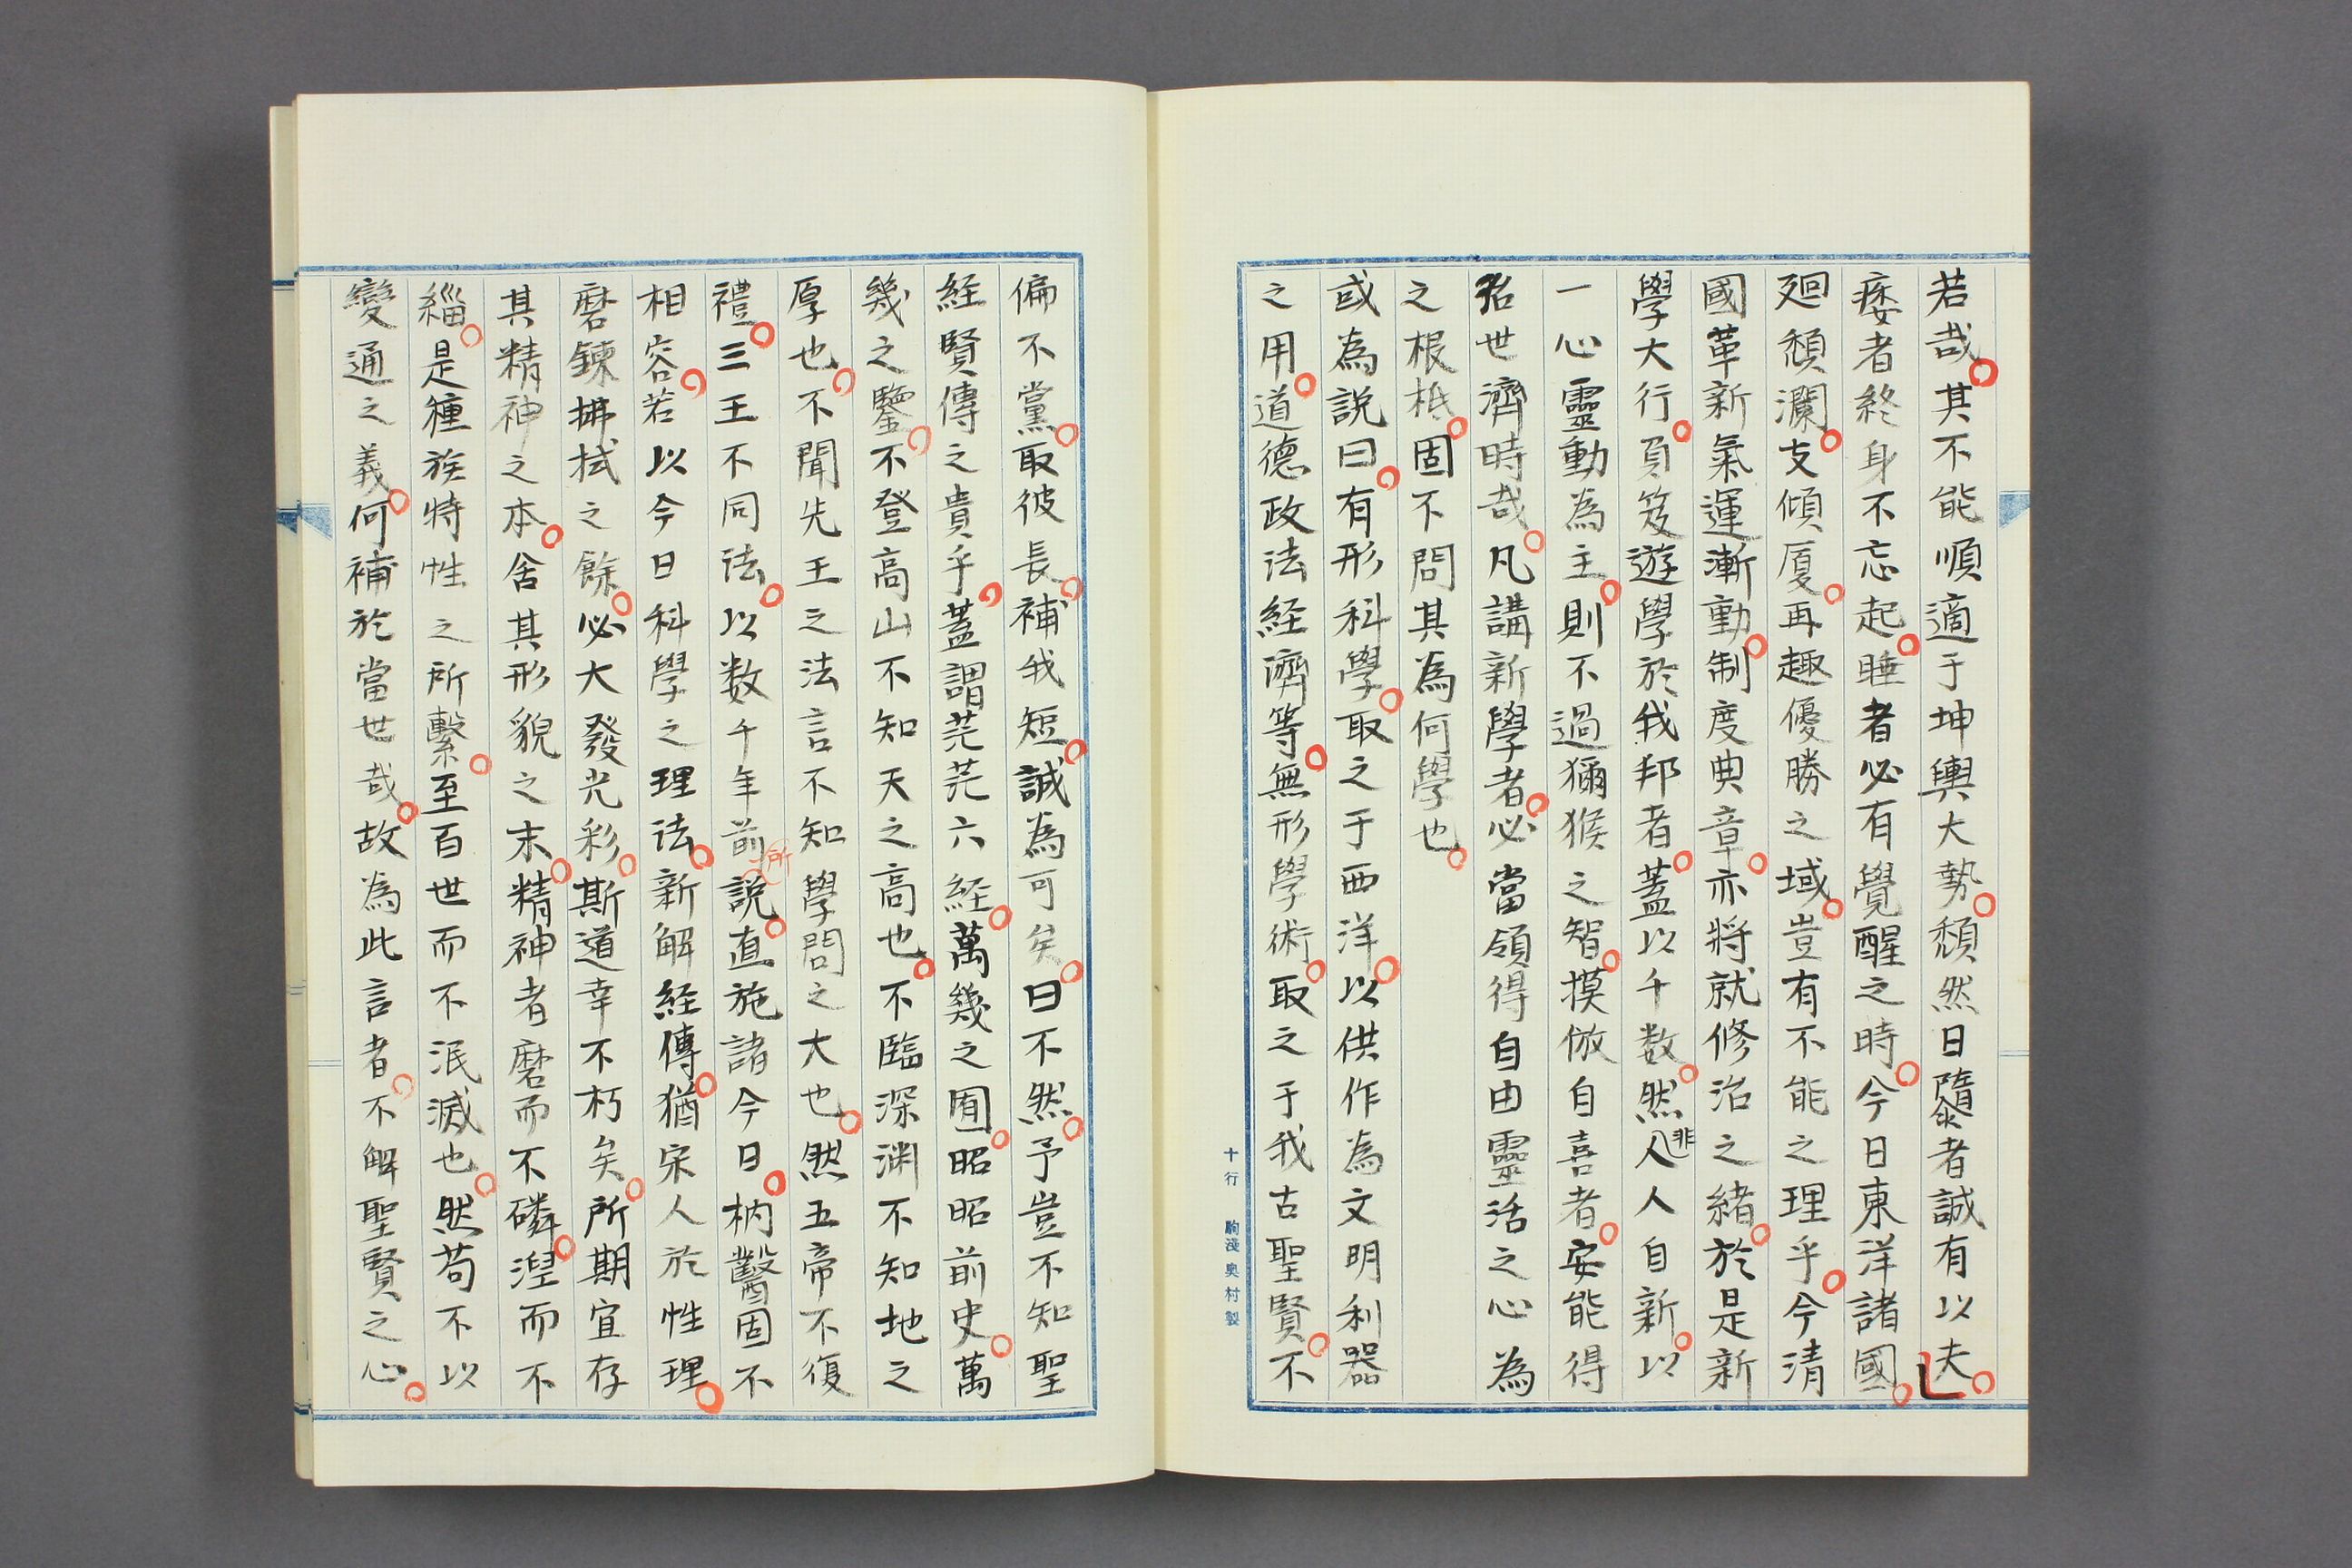 若哉。其不能順適于坤輿大勢。頹然日隳者誠有以夫。
痿者終身不忘起。睡者必有覺醒之時。今日東洋諸國。
廻頹瀾。支傾厦。再趣優勝之域。豈有不能之理乎。今清
國革新氣運漸動。制度典章。亦將就修治之緒。於是新
學大行。負笈遊學於我邦者。蓋以千数。然非人人自新。以
一心靈動為主。則不過獼猴之智。摸倣自喜者。安能得
治世濟時哉。凡講新學者。必當領得自由靈活之心為
之根柢。固不問其為何學也。
或為説曰。有形科學。取之于西洋。以供作為文明利器
之用。道德政法経濟等。無形學術。取之于我古聖賢。不
偏不黨。取彼長。補我短。誠為可矣。曰不然。予豈不知聖
経賢傳之貴乎。蓋謂茫茫六経。萬幾之囿。昭昭前史。萬
幾之鑒。不登高山不知天之高也。不臨深渊不知地之
厚也。不聞先王之法言不知學問之大也。然五帝不復
禮。三王不同法。以数千年前所説。直施諸今日。枘鑿固不
相容。若以今日科學之理法。新解経傳。猶宋人於性理。
磨鍊拂拭之餘。必大發光彩。斯道幸不朽矣。所期宜存
其精神之本。舍其形貌之末。精神者磨而不磷。涅而不
緇。是種族特性之所繫。至百世而不泯滅也。然苟不以
變通之義。何補於當世哉。故為此言者。不解聖賢之心。
十行 駒淺奥村製